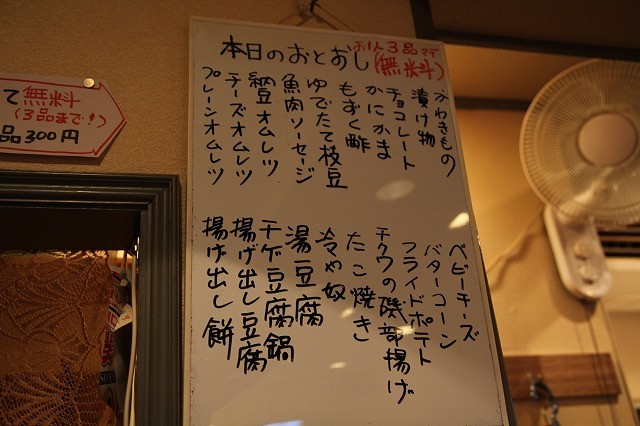 本日のおとおし
お1人3品マデ
(無料)
かわきもの
漬け物
チョコレート
かにかま
もずく酢
ゆでたて枝豆
魚肉ソーセージ
納豆オムレツ
チーズオムレツ
プレーンオムレツ
ベビーチーズ
バターコーン
フライドポテト
チクワの磯部揚げ
たこ焼き
冷や奴
湯豆腐
チゲ豆腐鍋
揚げ出し豆腐
揚げ出し餅
て無料
(3品まで!)
品300円